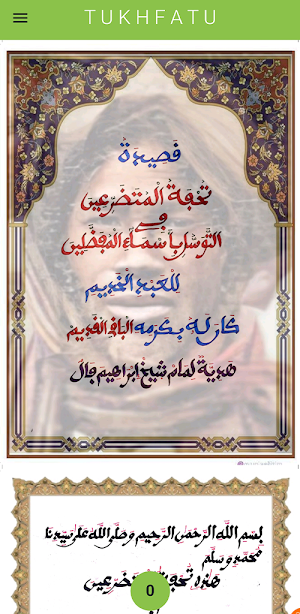 TUKHFATU
قَصِيدَةُ
تُحْفَةُ الْمُتَضَرِّعِينَ
فِي
التَّوَسُّلِ بِأَسْمَاءِ الْمُفَضَّلِينَ
لِلْعَبْدِ الْخَدِيمِ
كَانَ لَهُ بِكَرَمِهِ الْبَاقِ الْقَدِيمِ
هَدِيَّة لمام شيخ ابراهيم فال
بِسْمِ اللَّهِ الرَّحْمَٰنِ الرَّحِيمِ وَصَلَّى اللَّهُ عَلَى سَيِّدِنَا
مُحَمَّدٍ وَسَلَّم
هَذِهِ تُحْفَةُ الْمُتَضَرِّعِينَ
0